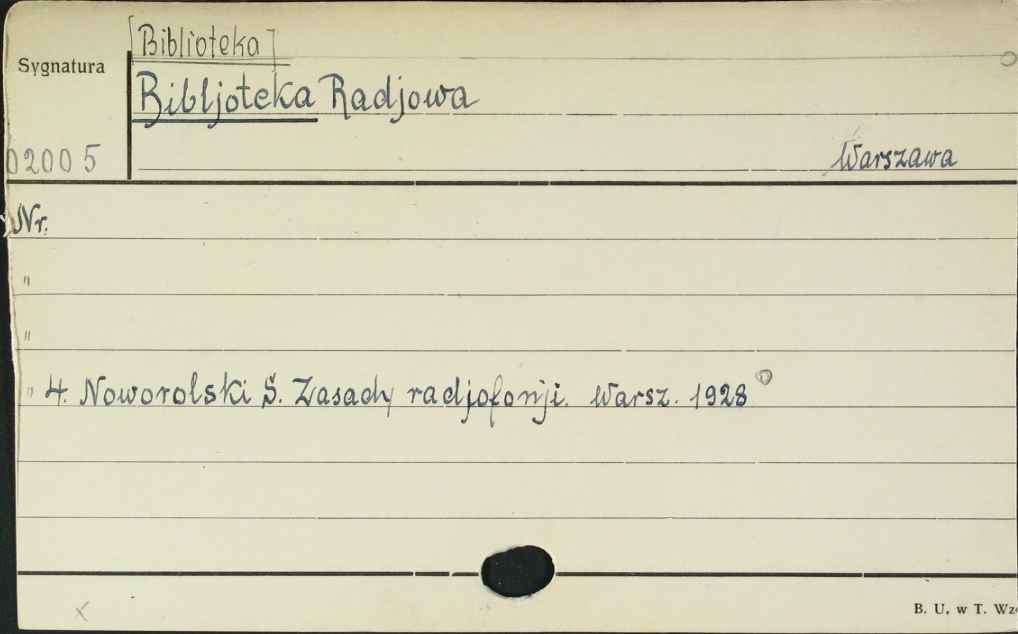 [Biblioteka]
Sygnatura
Bibljoteka Radjowa
02005
Warszawa
Nr.
"
"
" 4. Noworolski S. Zasady radjofonji. Warsz. 1928
x
B. U. w T. Wz